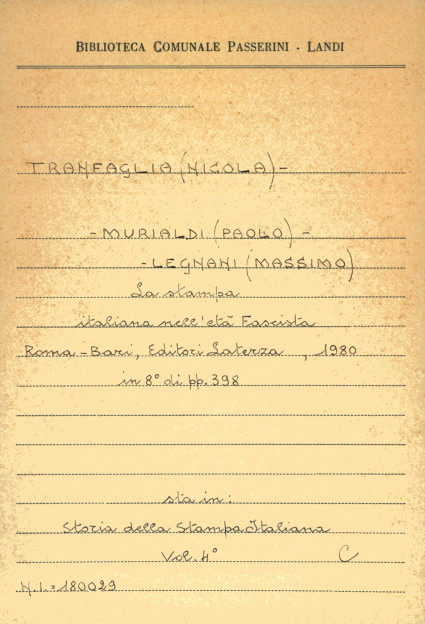 BIBLIOTECA COMUNALE PASSERINI - LANDI
TRANFAGLIA (NICOLA) -
- MURIALDI (PAOLO) -
- LEGNANI (MASSIMO)
La stampa
italiana nell'età Fascista
Roma - Bari, Editori Laterza , 1980
in 8° di pp. 398
sta in:
Storia della Stampa Italiana
Vol. 4° C
N.I. = 180029